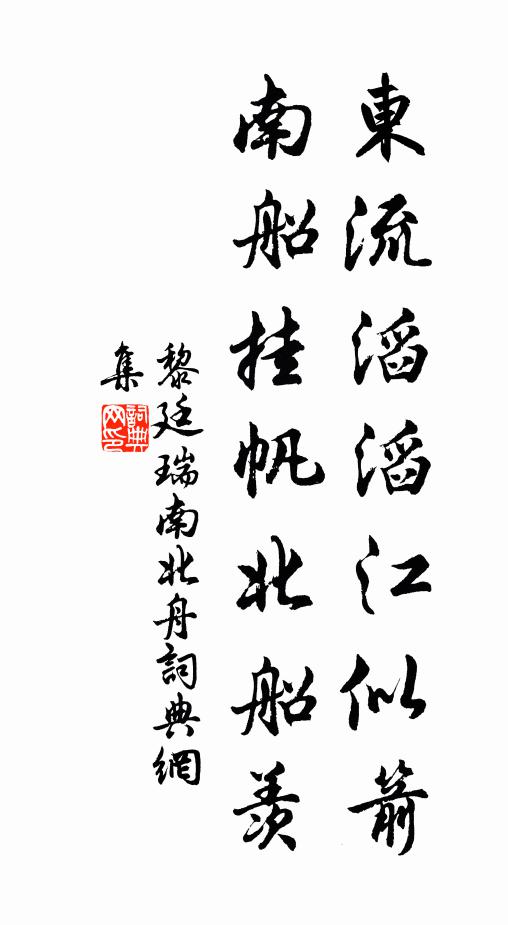 東流滔滔江似箭
南船挂帆北船羨
黎廷瑞南北舟詞典網
集
詞典
网印